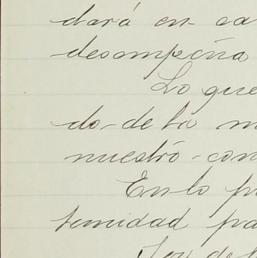 dará en ca
desempeña
Lo que
do-de la m
nuestro-con
En lo pr
ternidad pa